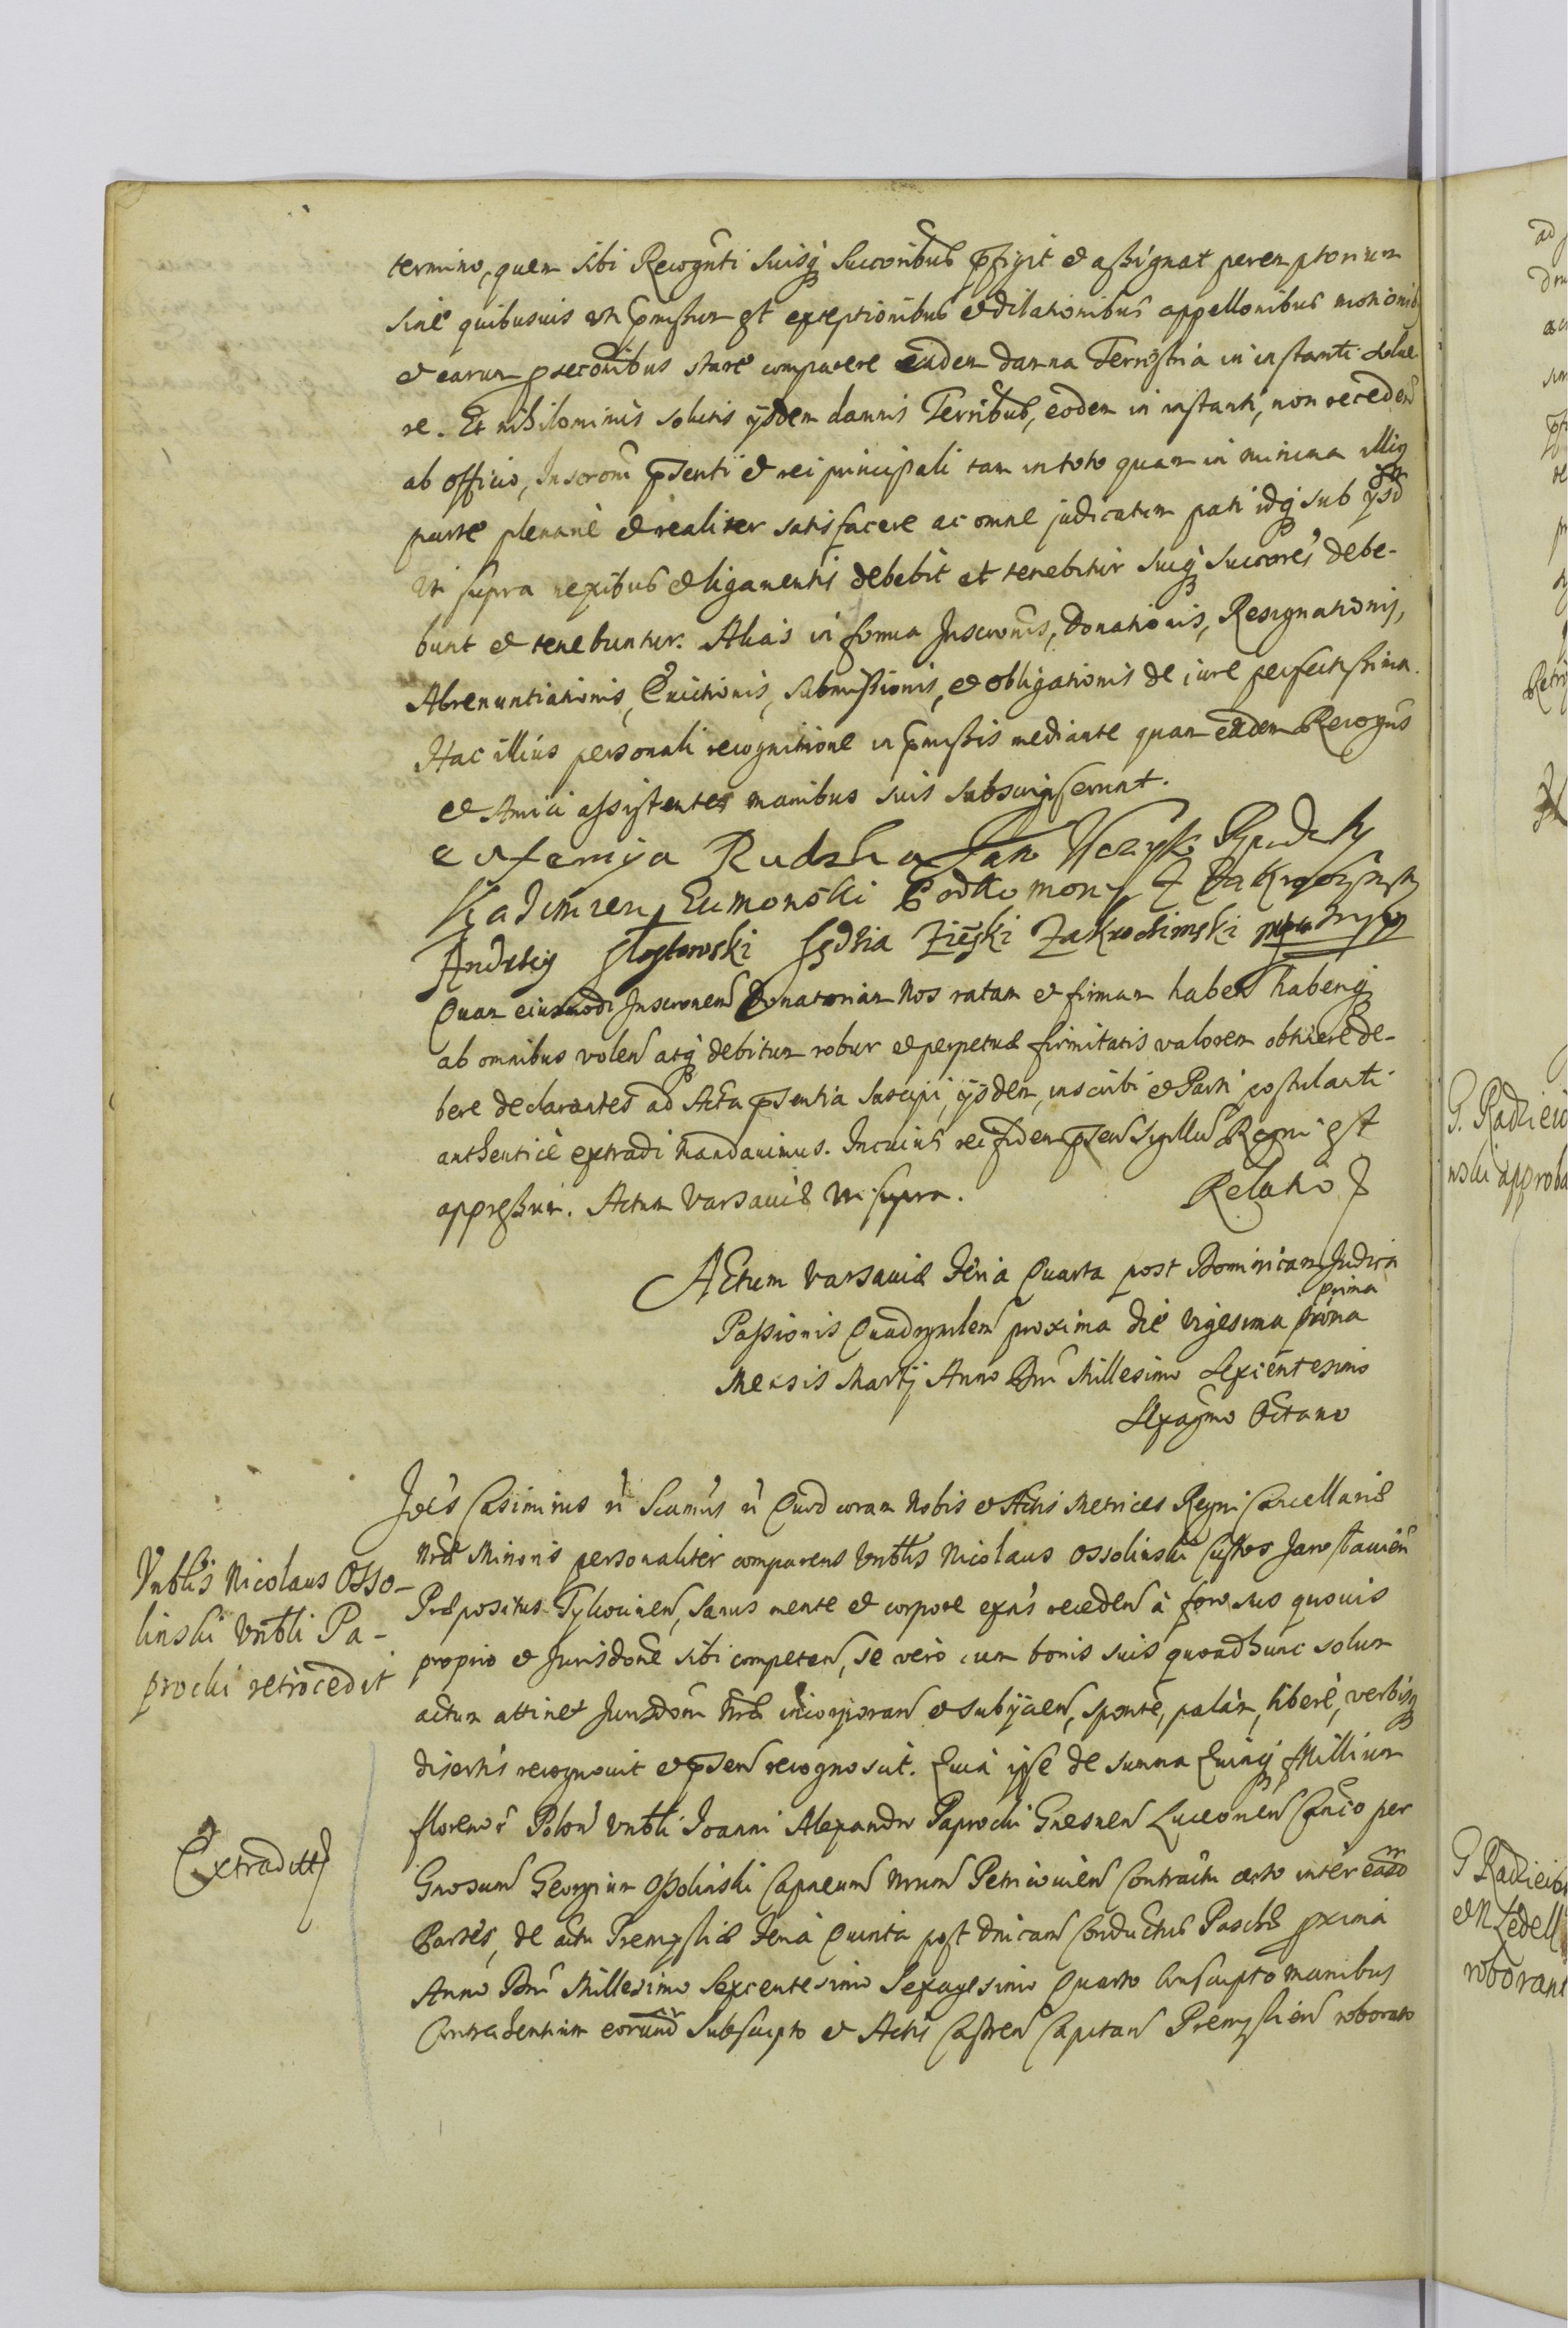 termino, quem sibi Recognti suisq succoribus pfigit et assignat peremptorium
sine quibusuis uti pmissum est exceptionibus et dilationibus appellonibus motionib
et earum psecoonibus stare comparere eadem damna Terrestria in instanti solue
re. Et nihilominus solutis ysdem damnis Terribus, eodem in instanti, non receden
ab officio, Inscroni psenti et rei principali tam in toto quam in minima illiq
parte plenarie et realiter satisfacere ac omne judicatum pati idq sub ysd
uti supra nexibus et ligamentis debebit et tenebitur suiq succores debe-
bunt et tenebuntur. Alias in forma Inscronis, Donationis, Resignationis,
Abrenuntiationis, Euictionis, submissionis, et obligationis de iure perfectissima.
Hac illius personali recognitione in pmissis mediante quam eadem Recogns
et Amici assistentes manibus suis subscripserunt.
eufemija Rudzka Jan
Kazimierz Podkomorzy Z Zakroczymsky
Andrzey sędzia Zięski Zakrochimski
Quam eiusmodi Inscronem Donatoriam Nos ratam et firmam haben habenq
ab omnibus volen atq debitum robur et perpetuæ firmitatis valorem obtinere de-
bere declarantes ad Acta psentia suscipi, ysdem, inscribi et Parti postulanti
authentice extradi Mandauimus. In cuius rei fidem psen Sigillu Regni est
appressum. Actum Varsauiæ uti supra. Relatio J
Actum Varsauiæ Feria Quarta post Dominicam Judica
prima
Passionis Quadragsalem proxima die Vigesima
Mensis Martij Anno Dni Millesimo Sexcentesimo
Sexagmo Octauo
Joes Casimirus n Scamus n Quod coram Nobis et Actis Metrices Regni Cancellariæ
Nræ Minoris personaliter comparens Vnblis Nicolaus Ossolinski Custos Jaroslauien
Præpositus Tykocinen, sanus mente et corpore exns receden à foro suo quouis
proprio et Jurisdone sibi competen, se vero cum bonis suis quoad hunc solum
actum attinet Jurisdoni Nræ incorporan et subijcien, sponte, palam, libere, verbisq
disertis recognouit et psen recognoscit. Quia ipse de summa Quinq Millium
florenor Polon Vnbli Joanni Alexandro Paprocki Gnesnen Luceorien Canco per
Gnosum Georgium Ossolinski Capneum Nrum Petricouien Contractu certo inter easd
Partes, de actu Premysliæ Feria Quinta post Dnicam Conductus Paschæ pxima
Anno Dni Millesimo Sexcentesimo Sexagesimo Quarto conscripto manibus
Contrahentium eorund Subscripto et Actis Castren Capitan Premyslien roborato
Vnblis Nicolaus Osso-
linski Vnbli Pa-
procki retrocedit
Extraditt
G. Radzieio
nski approba
G Radzieio
et N Zedell
roborant